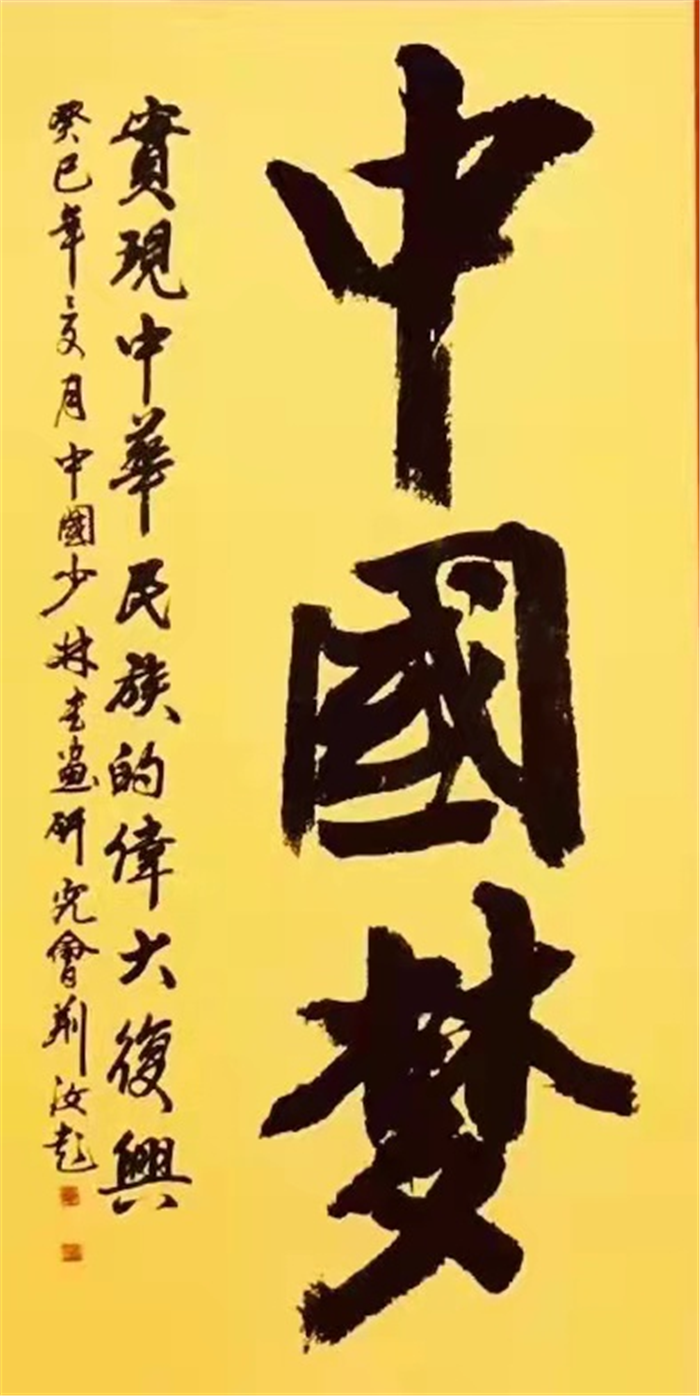 中國梦
實現中華民族的偉大復興
癸巳年之夏月中國少林书画研究會荆汝彪